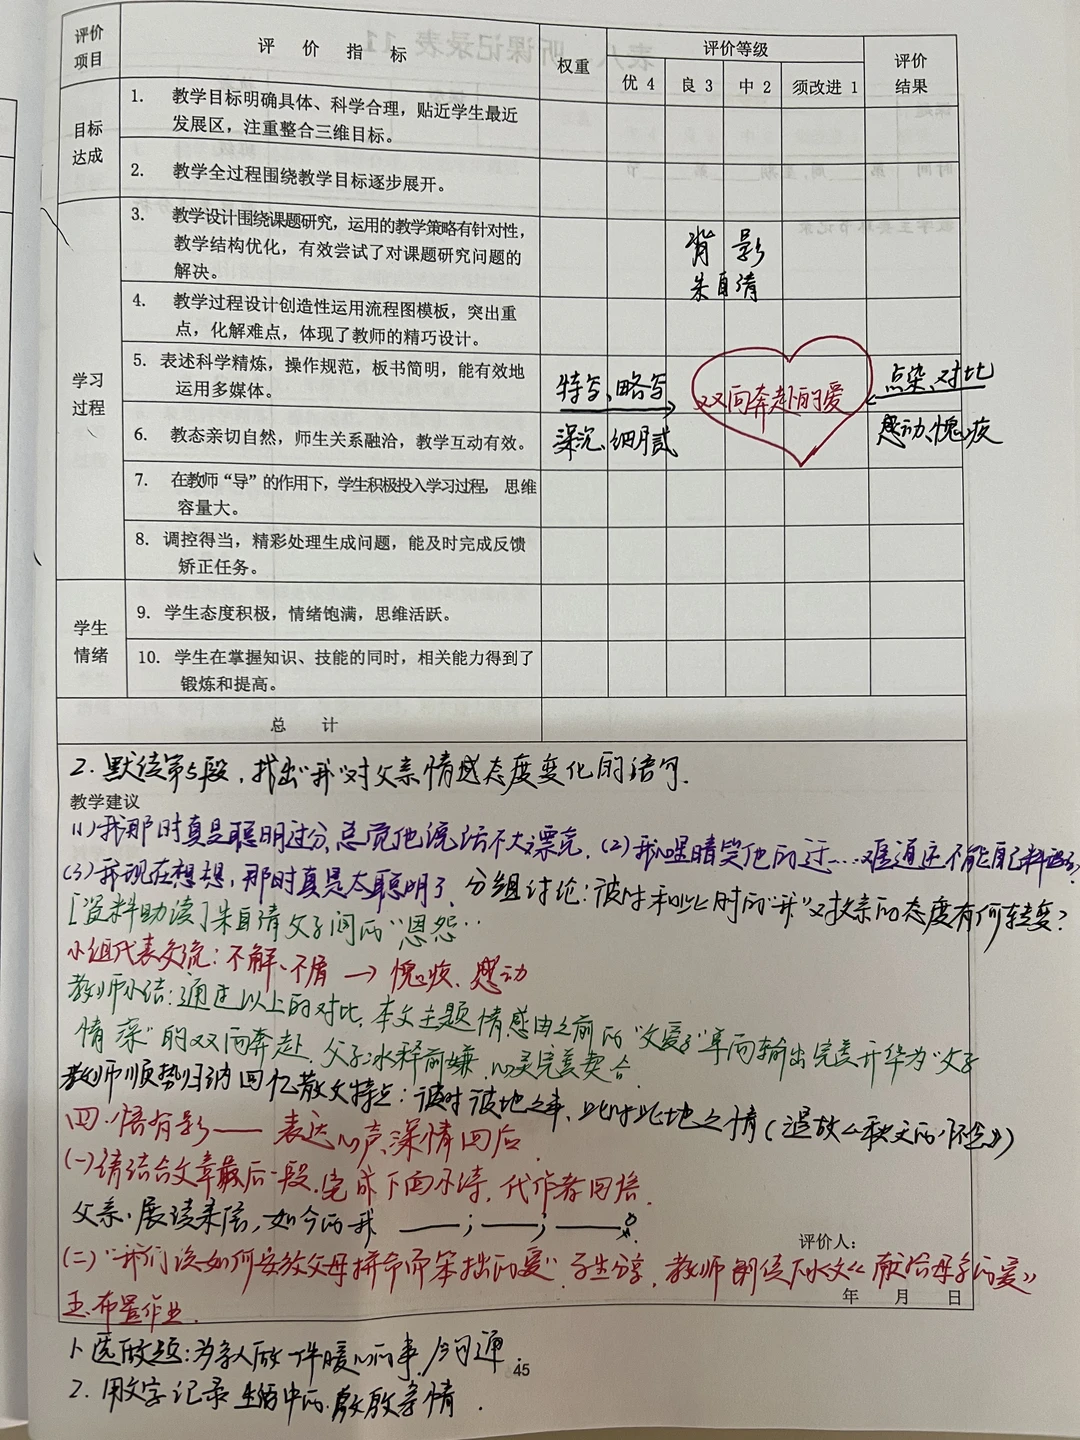 评价项目 评 价 指 标 权重 评价等级 评价结果
优 4 良 3 中 2 须改进 1
目标达成
1. 教学目标明确具体、科学合理，贴近学生最近
发展区，注重整合三维目标。
2. 教学全过程围绕教学目标逐步展开。
学习过程
3. 教学设计围绕课题研究，运用的教学策略有针对性，
教学结构优化，有效尝试了对课题研究问题的
解决。
4. 教学过程设计创造性运用流程图模板，突出重
点，化解难点，体现了教师的精巧设计。
5. 表述科学精炼，操作规范，板书简明，能有效地
运用多媒体。
6. 教态亲切自然，师生关系融洽，教学互动有效。
7. 在教师“导”的作用下，学生积极投入学习过程，思维
容量大。
8. 调控得当，精彩处理生成问题，能及时完成反馈
矫正任务。
学生情绪
9. 学生态度积极，情绪饱满，思维活跃。
10. 学生在掌握知识、技能的同时，相关能力得到了
锻炼和提高。
背 影
朱自清
特写、略写
深沉、细腻
双向奔赴的爱
点染、对比
感动、愧疚
总 计
2. 默读第5段，找出“我”对父亲情感态度变化的语句.
教学建议
(1)我那时真是聪明过分,总觉他说话不大漂亮. (2)我心里暗笑他的迂…难道还不能自己料理么?
(3)我现在想想，那时真是太聪明了. 分组讨论：彼时和此时的“我”对父亲的态度有何转变?
[资料助读]朱自清父子间的“恩怨”
小组代表交流：不解、不屑 → 愧疚、感动
教师小结：通过以上的对比，本文主题情感由之前的“父爱子”单向输出完美升华为“父子
情深”的双向奔赴. 父子冰释前嫌，心灵完美契合.
教师顺势归纳回忆散文特点：彼时彼地之事、此时此地之情(
四、悟背影—— 表达心声,深情回
(一)请结合文章最后一段,完成下面小诗，代作者回信.
父亲，展读来信，如今的我 ——；——；——。
评价人：
(二)“我们该如何安放父母拼命而笨拙的爱” 学生分享，教师朗读下水文《献给母亲的爱》
年 月 日
五、布置作业.
1. 选做题：为亲人做一件暖心的事,
2. 用文字记录生活中的 亲情.
45